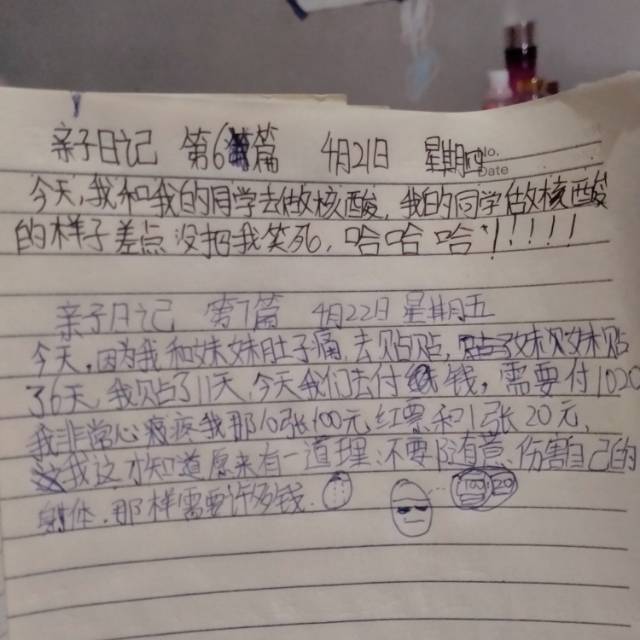 亲子日记 第6篇 4月21日 星期四
No.
Date
今天,我和我的同学去做核酸,我的同学做核酸
的样子差点没把我笑死,哈哈哈!!!!!!
亲子日记 第7篇 4月22日 星期五
今天,因为我和妹妹肚子痛,去贴贴,妹妹贴
了6天,我贴了11天,今天我们去付钱,需要付1020
我非常心疼我那10张100元红票和1张20元,
我这才知道原来有一道理,不要伤害自己的
身体.那样需要许多钱.
100 20